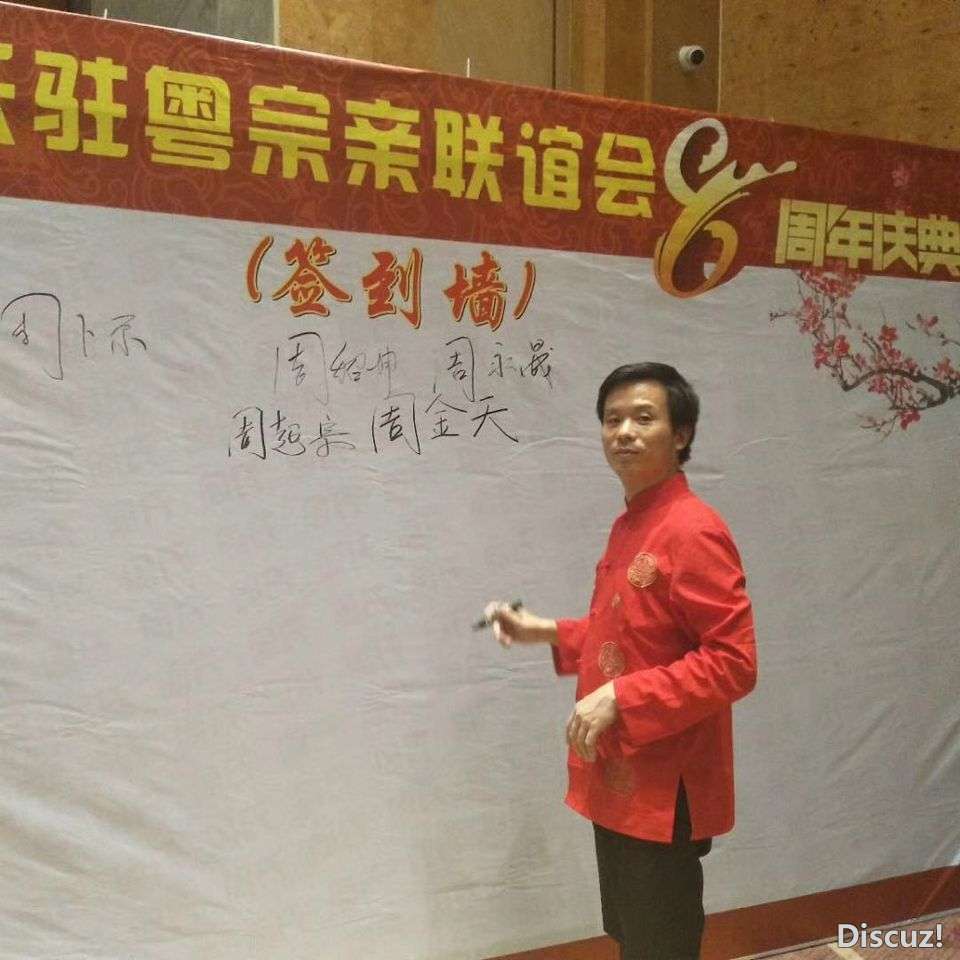 驻粤宗亲联谊会8周年庆典
(签到墙)
周卜示
周绍坤 周永晟
周起 周金天
Discuz!